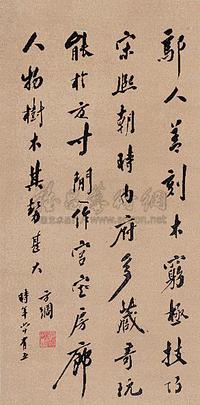 人善刻木窮極技巧
宋熙朝時內府多藏奇玩
能於方寸間作宮室房廊
人物樹木其勢甚大
時年 十有五